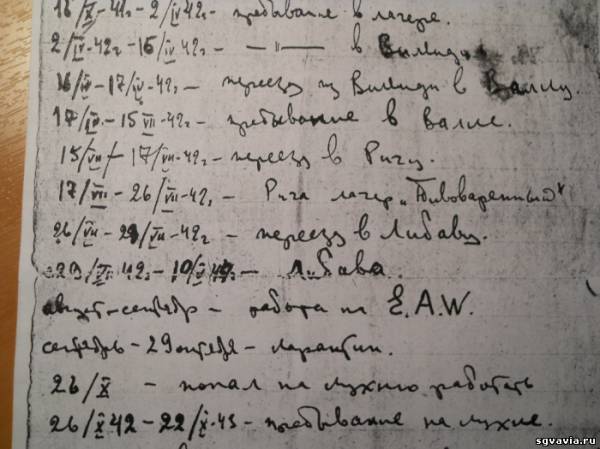 16/X-41г - 2/IV 42г. - пребывание в лагере.
2/IV-42г - 16/IV-42г. - —〃— в Вилянди
16/IV - 17/IV-42г. - переезд из Вилянди в Валлу.
17/IV - 15 VII-42г. - пребывание в Валле.
15/VII - 17/VII-42г. - переезд в Ригу.
17/VII - 26/VII-42г. - Рига лагер „Пивоваренный"
26/VII - 29/VII-42г - переезд в Либаву.
42г - Либава.
август-сентябр - работа на E.A.W.
сентябрь - 29 октября - карантин.
26/X - попал на кухню работать
26/X 42 - 22/X-43 - пребывание на кухне.
sgvavia.ru